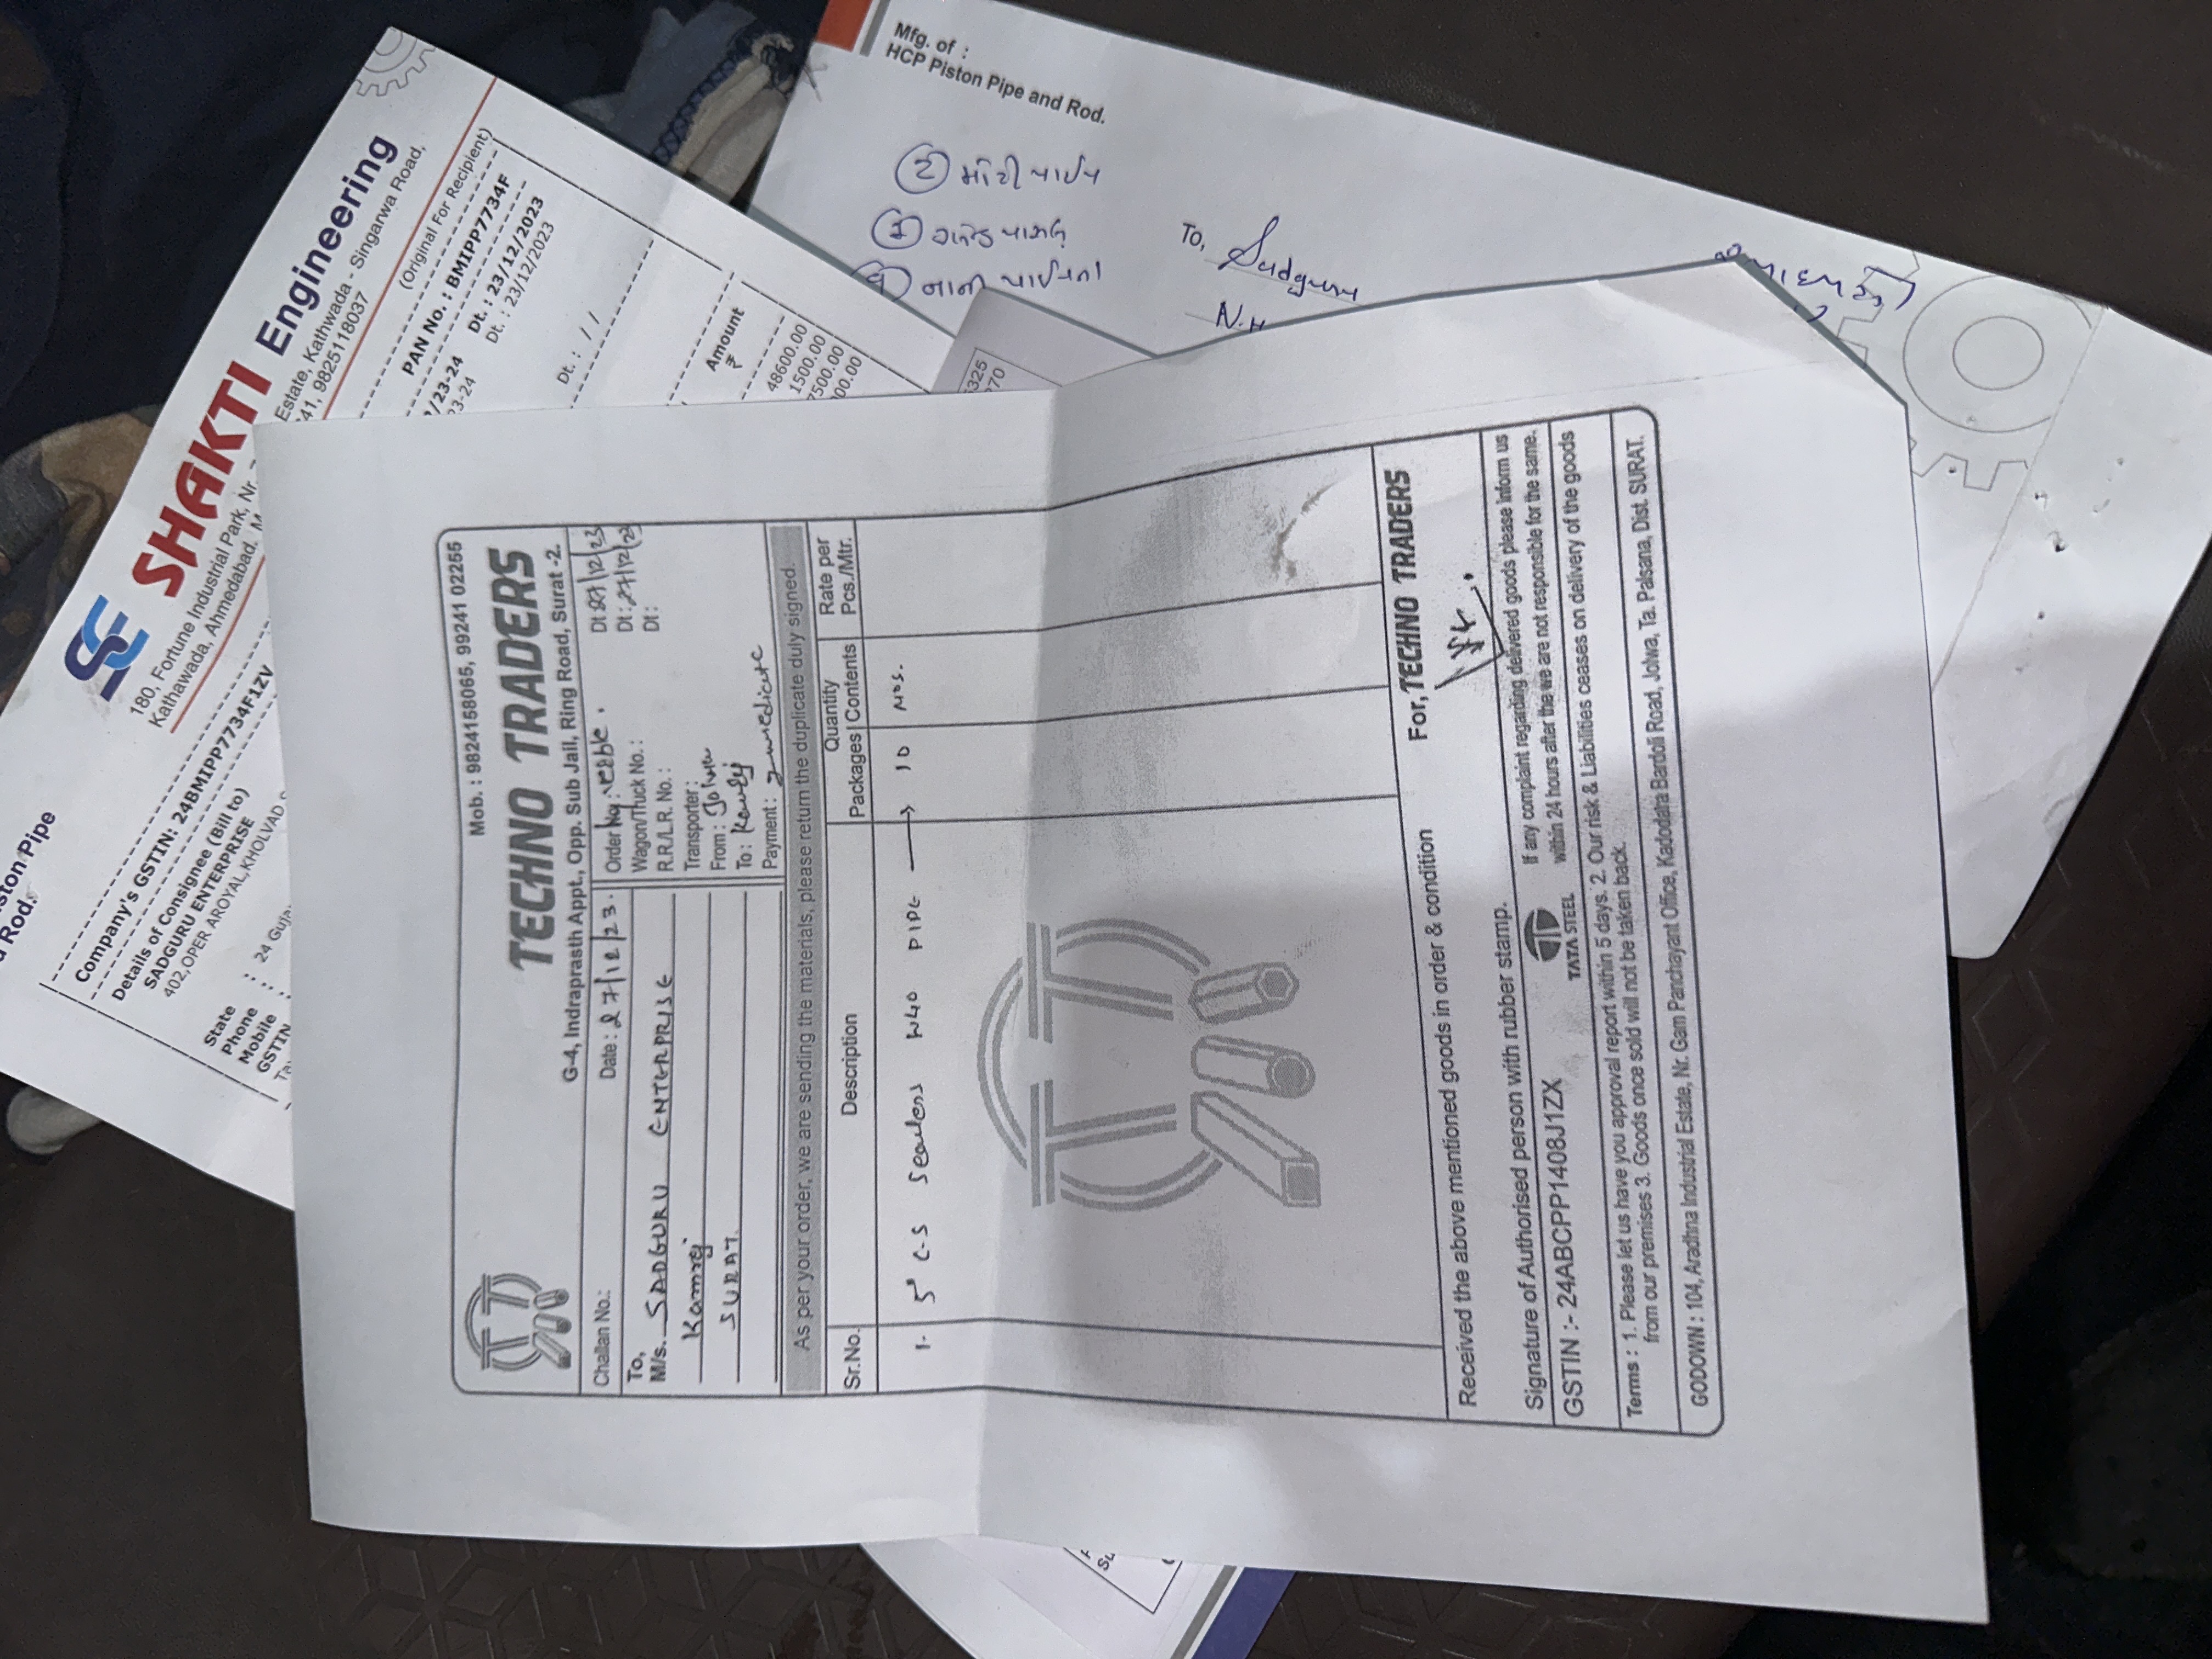 ston Pipe
Rod.
SHAKTI Engineering
180, Fortune Industrial Park, Nr.
Estate, Kathwada - Singarwa Road,
Kathawada, Ahmedabad. M
41, 9825118037
(Original For Recipient)
Company's GSTIN: 24BMIPP7734F1ZV
PAN No. : BMIPP7734F
Details of Consignee (Bill to)
SADGURU ENTERPRISE
402,OPER AROYAL,KHOLVAD
State : 24 Guja
Phone :
Mobile :
GSTIN
/23-24 Dt. : 23/12/2023
23-24 Dt. : 23/12/2023
Dt. : / /
Amount
₹
48600.00
1500.00
7500.00
00.00
325
70
Mob. : 9824158065, 99241 02255
TECHNO TRADERS
G-4, Indraprasth Appt., Opp. Sub Jail, Ring Road, Surat -2.
Challan No.: Date : 27/12/23.
Order No.: Dt: 27/12/23
To, Wagon/Truck No. : Dt: 27/12/23
M/s. SADGURU ENTERPRISE
R.R/L.R. No. : Dt :
Kamrej
Transporter :
SURAT.
From : Jolwa
To :
Payment : Immediate
As per your order, we are sending the materials, please return the duplicate duly signed.
Sr.No. Description Quantity Rate per
Packages Contents Pcs./Mtr.
1. 5" C.S Seamless PIPE → 10 NOS.
Received the above mentioned goods in order & condition
For, TECHNO TRADERS
Signature of Authorised person with rubber stamp.
GSTIN :- 24ABCPP1408J1ZX
TATA STEEL
If any complaint regarding delivered goods please inform us
within 24 hours after the we are not responsible for the same.
Terms : 1. Please let us have you approval report within 5 days. 2. Our risk & Liabilities ceases on delivery of the goods
from our premises 3. Goods once sold will not be taken back.
GODOWN : 104, Aradhna Industrial Estate, Nr. Gam Panchayant Office, Kadodara Bardoli Road, Jolwa, Ta. Palsana, Dist. SURAT.
Mfg. of :
HCP Piston Pipe and Rod.
To,